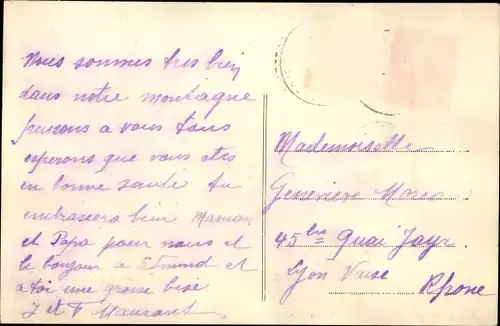 Nous sommes tres bien
dans notre montagne
pensons a vous tous
esperons que vous etes
en bonne santé Tu
embrassera bien Maman
et Papa pour nous et
le bonjour a Edmond et
a toi une grosse bise
J et F Maurant
Mademoiselle
Genevieve
45 bis Quai Jayr
Lyon Vaise
Rhone